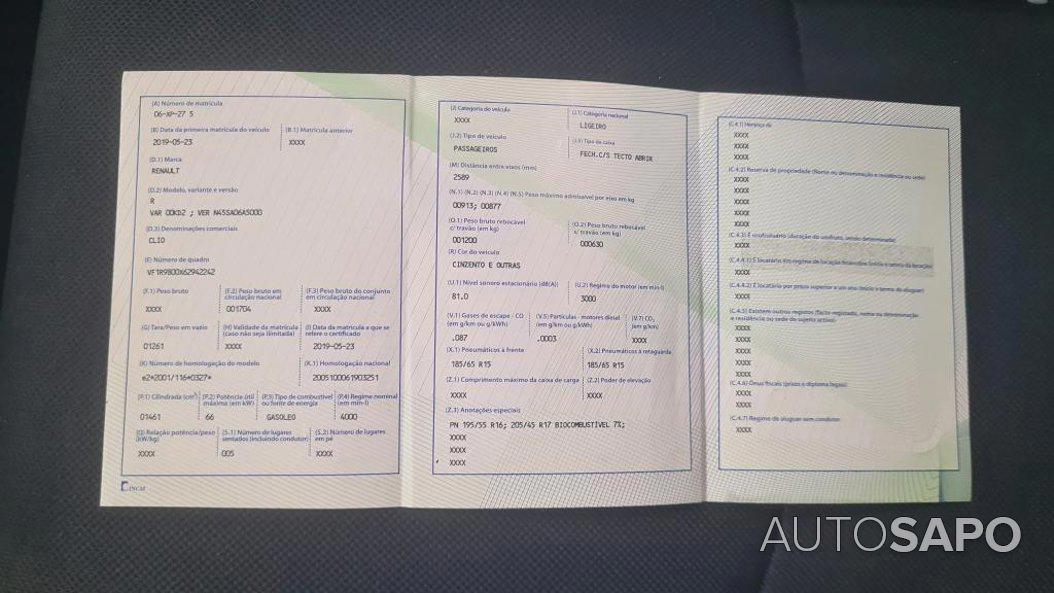 (A) Número de matrícula
06-XP-27 5
(B) Data da primeira matrícula do veículo
(B.1) Matrícula anterior
2019-05-23
XXXX
(D.1) Marca
RENAULT
(D.2) Modelo, variante e versão
R
VAR 00KD2 ; VER N45SA06A5000
(D.3) Denominações comerciais
CLIO
(E) Número de quadro
VF1R9800X62942242
(F.1) Peso bruto
(F.2) Peso bruto em circulação nacional
(F.3) Peso bruto do conjunto em circulação nacional
XXXX
001704
XXXX
(G) Tara/Peso em vazio
(H) Validade da matrícula (caso não seja ilimitada)
(I) Data da matrícula a que se refere o certificado
01261
XXXX
2019-05-23
(K) Número de homologação do modelo
(K.1) Homologação nacional
e2*2001/116*0327*
2005100061903251
(P.1) Cilindrada (cm³)
(P.2) Potência útil máxima (em kW)
(P.3) Tipo de combustível ou fonte de energia
(P.4) Regime nominal (em min-1)
01461
66
GASOLEO
4000
(Q) Relação potência/peso (kW/kg)
(S.1) Número de lugares sentados (incluindo condutor)
(S.2) Número de lugares em pé
XXXX
005
XXXX
INCM
(J) Categoria do veículo
(J.1) Categoria nacional
XXXX
LIGEIRO
(J.2) Tipo de veículo
(J.3) Tipo de caixa
PASSAGEIROS
FECH.C/S TECTO ABRIR
(M) Distância entre eixos (mm)
2589
(N.1) (N.2) (N.3) (N.4) (N.5) Peso máximo admissível por eixo em kg
00913; 00877
(O.1) Peso bruto rebocável c/ travão (em kg)
(O.2) Peso bruto rebocável s/ travão (em kg)
001200
000630
(R) Cor do veículo
CINZENTO E OUTRAS
(U.1) Nível sonoro estacionário [dB(A)]
(U.2) Regime do motor (em min-1)
81.0
3000
(V.1) Gases de escape - CO (em g/km ou g/kWh)
(V.5) Partículas - motores diesel (em g/km ou g/kWh)
(V.7) CO₂ (em g/km)
.087
.0003
XXXX
(X.1) Pneumáticos à frente
(X.2) Pneumáticos à retaguarda
185/65 R15
185/65 R15
(Z.1) Comprimento máximo da caixa de carga
(Z.2) Poder de elevação
XXXX
XXXX
(Z.3) Anotações especiais
PN 195/55 R16; 205/45 R17 BIOCOMBUSTÍVEL 7%;
XXXX
XXXX
XXXX
(C.4.1) Herança de
XXXX
XXXX
XXXX
(C.4.2) Reserva de propriedade (Nome ou denominação e residência ou sede)
XXXX
XXXX
XXXX
XXXX
XXXX
(C.4.3) É usufrutuário (duração do usufruto, sendo determinada)
XXXX
(C.4.4.1) É locatário em regime de locação financeira (início e termo da locação)
XXXX
(C.4.4.2) É locatário por prazo superior a um ano (início e termo do aluguer)
XXXX
(C.4.5) Existem outros registos (facto registado, nome ou denominação e residência ou sede do sujeito activo)
XXXX
XXXX
XXXX
XXXX
XXXX
(C.4.6) Ónus fiscais (prazo e diploma legal)
XXXX
XXXX
(C.4.7) Regime de aluguer sem condutor
XXXX
AUTOSAPO